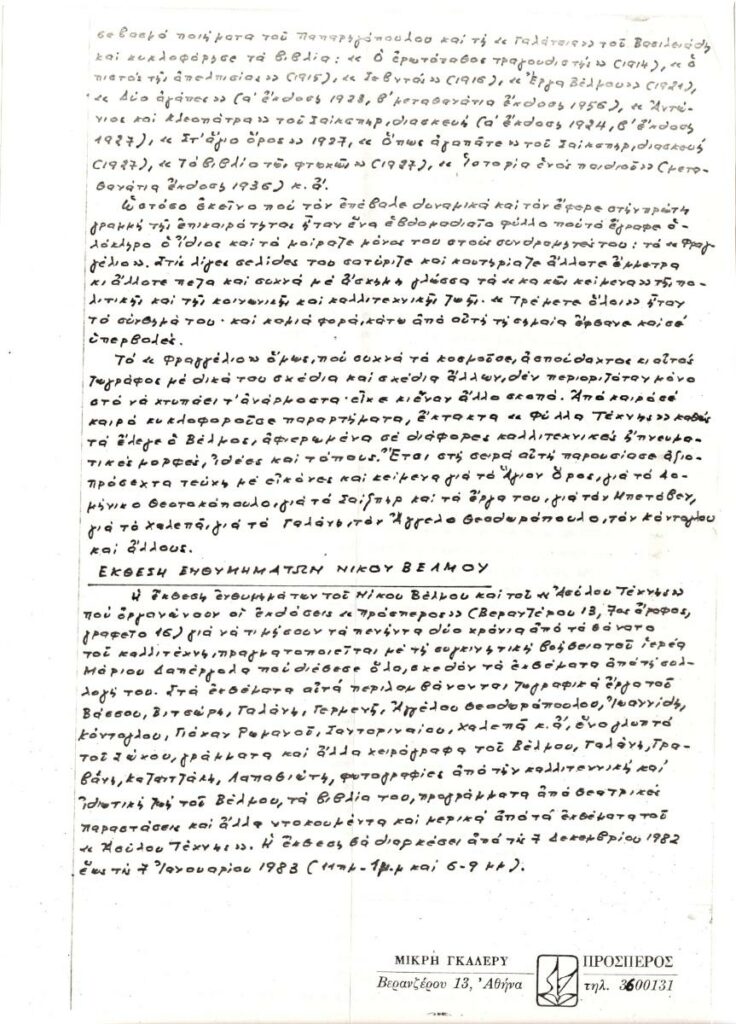 σεβασμό ποιήματα τοῦ Παπαρηγόπουλου καί τή «Γαλάτεια» τοῦ Βασιλειάδη
καί κυκλοφόρησε τά βιβλία: «Ὁ ἐρωτόπαθος τραγουδιστής» (1914), «ὁ
πιστός τῆς ἀπελπισίας» (1915), «Σεβντάς» (1916), «Ἔργα Βέλμου» (1921),
«Δύο ἀγάπες» (α' ἔκδοση 1928, β' μεταθανάτια ἔκδοση 1956), «Ἀντώ-
νιος καί Κλεοπάτρα» τοῦ Σαίκσπηρ, διασκευή (α' ἔκδοση 1924, β' ἔκδοση
1927), «Στ' ἅγιο ὄρος» 1927, «Ὅπως ἀγαπᾶτε» τοῦ Σαίκσπηρ, διασκευή
(1927), «Τό βιβλίο τῶν φτωχῶν» (1927), «Ἱστορία ἑνός παιδιοῦ» (μετα-
θανάτια ἔκδοση 1936) κ.ἄ.
Ὡστόσο ἐκεῖνο πού τόν ἐπέβαλε δυναμικά καί τόν ἔφερε στήν πρώτη
γραμμή τῆς ἐπικαιρότητας ἦταν ἕνα ἑβδομαδιαῖο φύλλο πού τό ἔγραφε ὁ-
λόκληρο ὁ ἴδιος καί τό μοίραζε μόνος του στούς συνδρομητές του: τό «Φραγ-
γέλιο». Στίς λίγες σελίδες του σατύριζε καί καυτηρίαζε ἄλλοτε ἔμμετρα
κι ἄλλοτε πεζά καί συχνά μέ ἄσχημη γλώσσα τά «κακῶς κείμενα» τῆς πο-
λιτικῆς καί τῆς κοινωνικῆς καί καλλιτεχνικῆς ζωῆς. «Τρέμετε ὅλοι» ἦταν
τό σύνθημά του· καί καμιά φορά, κάτω ἀπό αὐτή τή σημαία ἔφθανε καί σέ
ὑπερβολές.
Τό «Φραγγέλιο» ὅμως, πού συχνά τό κοσμοῦσε, ἀσπούδαχτος κι αὐτός
ζωγράφος μέ δικά του σχέδια καί σχέδια ἄλλων, δέν περιοριζόταν μόνο
στό νά χτυπάει τ' ἀνάρμοστα· εἶχε κι ἕναν ἄλλο σκοπό. Ἀπό καιρό σέ
καιρό κυκλοφοροῦσε παραρτήματα, ἔκτακτα «Φύλλα Τέχνης» καθώς
τά ἔλεγε ὁ Βέλμος, ἀφιερωμένα σέ διάφορες καλλιτεχνικές ἤ πνευμα-
τικές μορφές, ἰδέες καί τόπους. Ἔτσι στή σειρά αὐτή παρουσίασε ἀξιο-
πρόσεχτα τεύχη μέ εἰκόνες καί κείμενα γιά τό Ἅγιον Ὄρος, γιά τό Δο-
μήνικο Θεοτοκόπουλο, γιά τό Σαίξπηρ καί τά ἔργα του, γιά τόν Μπετόβεν,
γιά τό Χαλεπᾶ, γιά τό Γαλάνη, τόν Ἄγγελο Θεοδωρόπουλο, τόν Κόντογλου
καί ἄλλους.
ΕΚΘΕΣΗ ΕΝΘΥΜΗΜΑΤΩΝ ΝΙΚΟΥ ΒΕΛΜΟΥ
Ἡ ἔκθεση ἐνθυμημάτων τοῦ Νίκου Βέλμου καί τοῦ «Ἀσύλου Τέχνης»
πού ὀργανώνουν οἱ ἐκδόσεις «Πρόσπερος» (Βερανζέρου 13, 7ος ὄροφος,
γραφεῖο 16) γιά νά τιμήσουν τά πενήντα δύο χρόνια ἀπό τό θάνατο
τοῦ καλλιτέχνη, πραγματοποιεῖται μέ τή συγκινητική βοήθεια τοῦ ἱερέα
Μάριου Δαπέργολα πού διέθεσε ὅλα, σχεδόν τά ἐκθέματα ἀπό τή συλ-
λογή του. Στά ἐκθέματα αὐτά περιλαμβάνονται ζωγραφικά ἔργα τοῦ
Βάσσου, Βιτσώρη, Γαλάνη, Γερμενῆ, Ἀγγέλου Θεοδωρόπουλου, Ἰωαννίδη,
Κόντογλου, Γιόχαν Ρωμανοῦ, Σαντοριναίου, Χαλεπᾶ κ.ἄ, ἕνα γλυπτό
τοῦ Σώχου, γράμματα καί ἄλλα χειρόγραφα τοῦ Βέλμου, Γαλάνη, Γρα-
βάνη, Καζαντζάκη, Λαπαθιώτη, φωτογραφίες ἀπό τήν καλλιτεχνική καί
ἰδιωτική ζωή τοῦ Βέλμου, τά βιβλία του, προγράμματα ἀπό θεατρικές
παραστάσεις καί ἄλλα ντοκουμέντα καί μερικά ἀπό τά ἐκθέματα τοῦ
«Ἀσύλου Τέχνης». Ἡ ἔκθεση θά διαρκέσει ἀπό τίς 7 Δεκεμβρίου 1982
ἕως τίς 7 Ἰανουαρίου 1983 (11πμ-1μ.μ καί 6-9 μμ).
ΜΙΚΡΗ ΓΚΑΛΕΡΥ ΠΡΟΣΠΕΡΟΣ
Βερανζέρου 13, Ἀθήνα τηλ. 3600131